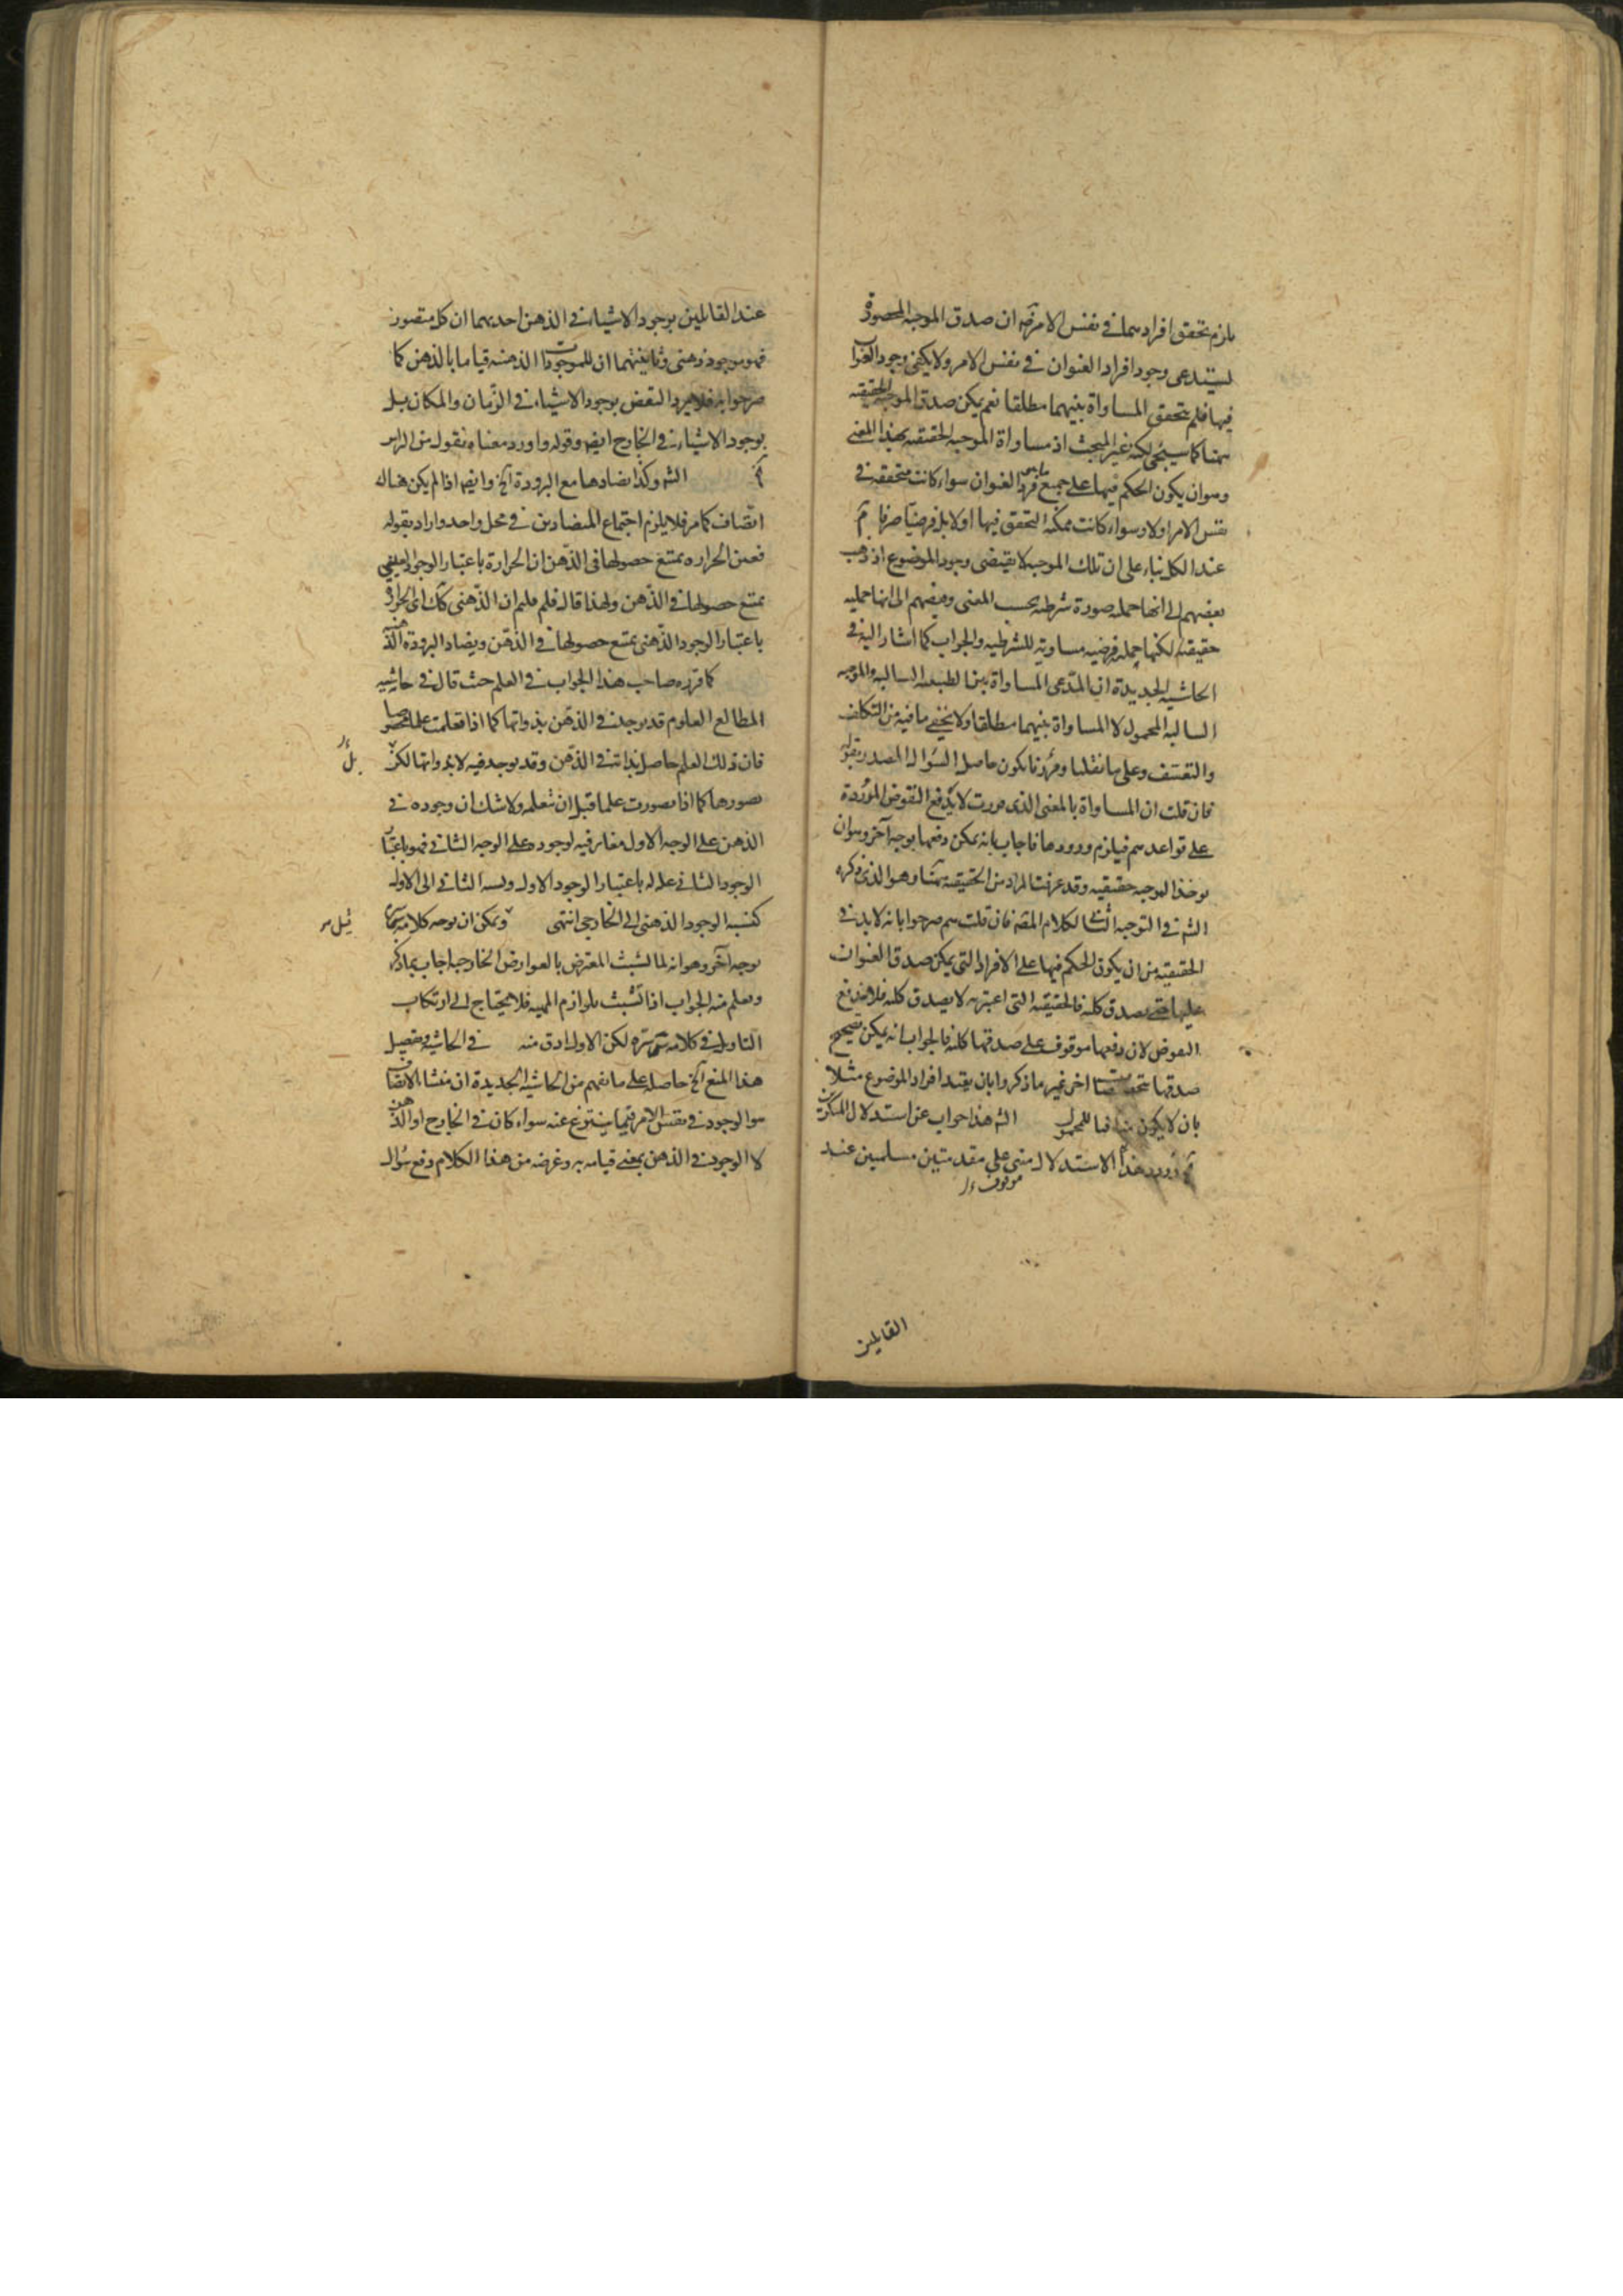 يلزم تحقق افرادهما في نفس الامر فيه ان صدق الموجبة
يستدعى وجود افراد العنوان في نفس الامر ولا يكفى وجود العنوان
فيها فلم يتحقق المساواة بينهما مطلقا نعم يمكن صدق الموجبة الحقيقية
كما سيجى لكنه غير المبحث اذ مساواة الموجبة الحقيقية بهذا المعنى
وهو ان يكون الحكم فيها على جميع العنوان سواء كانت متحققة في
نفس الامر اولا وسواء كانت ممكنة التحقق فيها اولا بل فرضيا صرفا
عند الكل بناء على ان تلك الموجبة لا يقتضى وجود الموضوع اذ ذهب
بعضهم الى انها حملية صورة شرطية بحسب المعنى وبعضهم الى انها حملية
حقيقة لكنها حملية فرضية مساوية للشرطية والجواب كما اشار اليه في
الحاشية الجديدة ان المدعى المساواة بين السالبة والموجبة
السالبة المحمول لا المساواة بينهما مطلقا ولا يخفى ما فيه من التكلف
والتعسف وعلى ما نقلنا يكون حاصل السؤال المصدر بقوله
فان قلت ان المساواة بالمعنى الذى لا يدفع النقوض الموردة
على قواعدهم فيلزم ورودها فاجاب بانه يمكن دفعها بوجه آخر وهو ان
يوخذ الموجبة حقيقية وقد عرفت المراد من الحقيقية وهو الذى ذكره
الش في التوجيه الثانى لكلام المصـ فان قلت هم صرحوا بانه لا بد في
الحقيقية من ان يكون الحكم فيها على الافراد التى يمكن صدق العنوان
عليها حتى يصدق كلية فالحقيقية التى اعتبرته لا يصدق كلية فلا يندفع
النقوض لان دفعها موقوف على صدقها كلية فالجواب انه يمكن تصحيح
صدقها اخر غير ما ذكروا بان يقيد افراد الموضوع مثلا
بان لا يكون منافيا للمحمول الش هذا جواب عن استدلال المنكرين
هذا الاستدلال مبنى على مقدمتين مسلمتين عند
موقوف
القايلين
عند القائلين بوجود الاشياء في الذهن احديهما ان كل متصور
فهو موجود ذهنى وثانيتهما ان للموجودات الذهنية قياما بالذهن كما
صرحوا به فلا يرد النقض بوجود الاشياء في الزمان والمكان بل
بوجود الاشياء في الخارج ايضا وقوله واورد معناه نقول من الراس
الش وكذا تضادها مع البرودة آلخ وايضا اذا لم يكن هناك
اتصاف كما مر فلا يلزم اجتماع المتضادين في محل واحد واراد بقوله
فعين الحرارة يمتنع حصولها في الذهن ان الحرارة باعتبار الوجود العينى
يمتنع حصولها في الذهن ولهذا قال فلم قلتم ان الذهنى كك اى الحرارة
باعتبار الوجود الذهنى يمتنع حصولها في الذهن ويضاد البرودة
كما قرره صاحب هذا الجواب في العلم حيث قال في حاشية
المطالع العلوم قد يوجد في الذهن بذواتها كما اذا تعلمت علما مخصوصا
فان ذلك العلم حاصل بذاته في الذهن وقد يوجد فيه لا بذواتها لكن
بصورها كما اذا تصورت علما قبل ان تعلمه ولا شك ان وجوده في
الذهن على الوجه الاول مغاير فيه لوجوده على الوجه الثانى فهو باعتبار
الوجود الثانى باعتبار الوجود الاول ونسبة الثانى الى الاول
كنسبة الوجود الذهنى الى الخارجى انتهى ويمكن ان يوجه كلامه
بوجه آخر وهو انه لما تشبث المعترض بالعوارض الخارجية اجاب بما ذكر
ويعلم منه الجواب اذا تشبث بلوازم المهية فلا يحتاج الى ارتكاب
التاويل في كلامه لكن الاول ادق منه في الحاشية وتفصيل
هذا المنع آلخ حاصله على ما يفهم من الحاشية الجديدة ان منشا الاتصاف
هو الوجود في نفس الامر فيما ينتزع عنه سواء كان في الخارج او الذهن
لا الوجود في الذهن بمعنى قيامه به وغرضه من هذا الكلام دفع سؤال